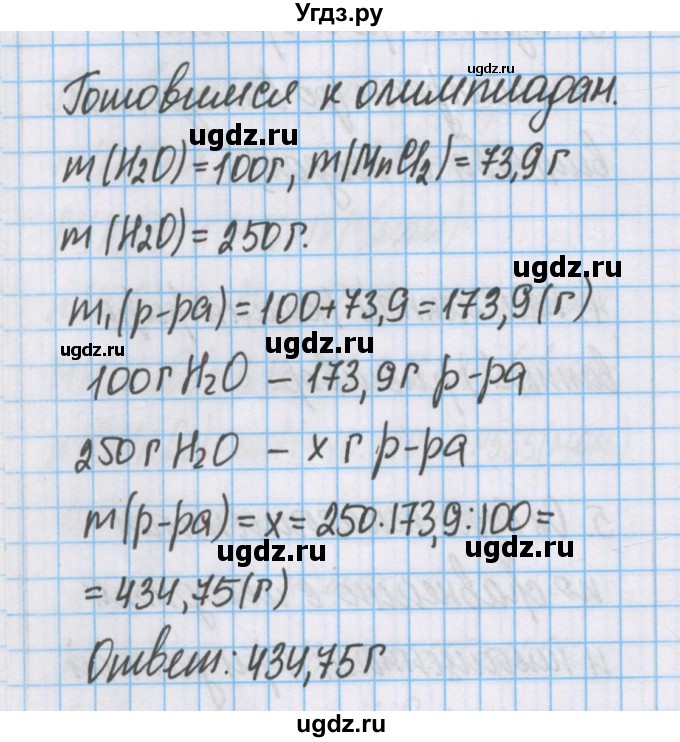 Угдз.ру
ugdz.ru
Готовимся к олимпиадан.
ugdz.ru
m(H2O)=100г, m(MnCl2)=73,9г
m(H2O)=250г.
ugdz.ru
m1(р-ра)=100+73,9=173,9(г)
ugdz.ru ugdz.ru
100г H2O – 173,9г р-ра
250г H2O – x г р-ра
m(р-ра)=x=250·173,9:100=
ugdz.ru ugdz.ru
=434,75(г)
Ответ: 434,75г
ugdz.ru
ugdz.ru